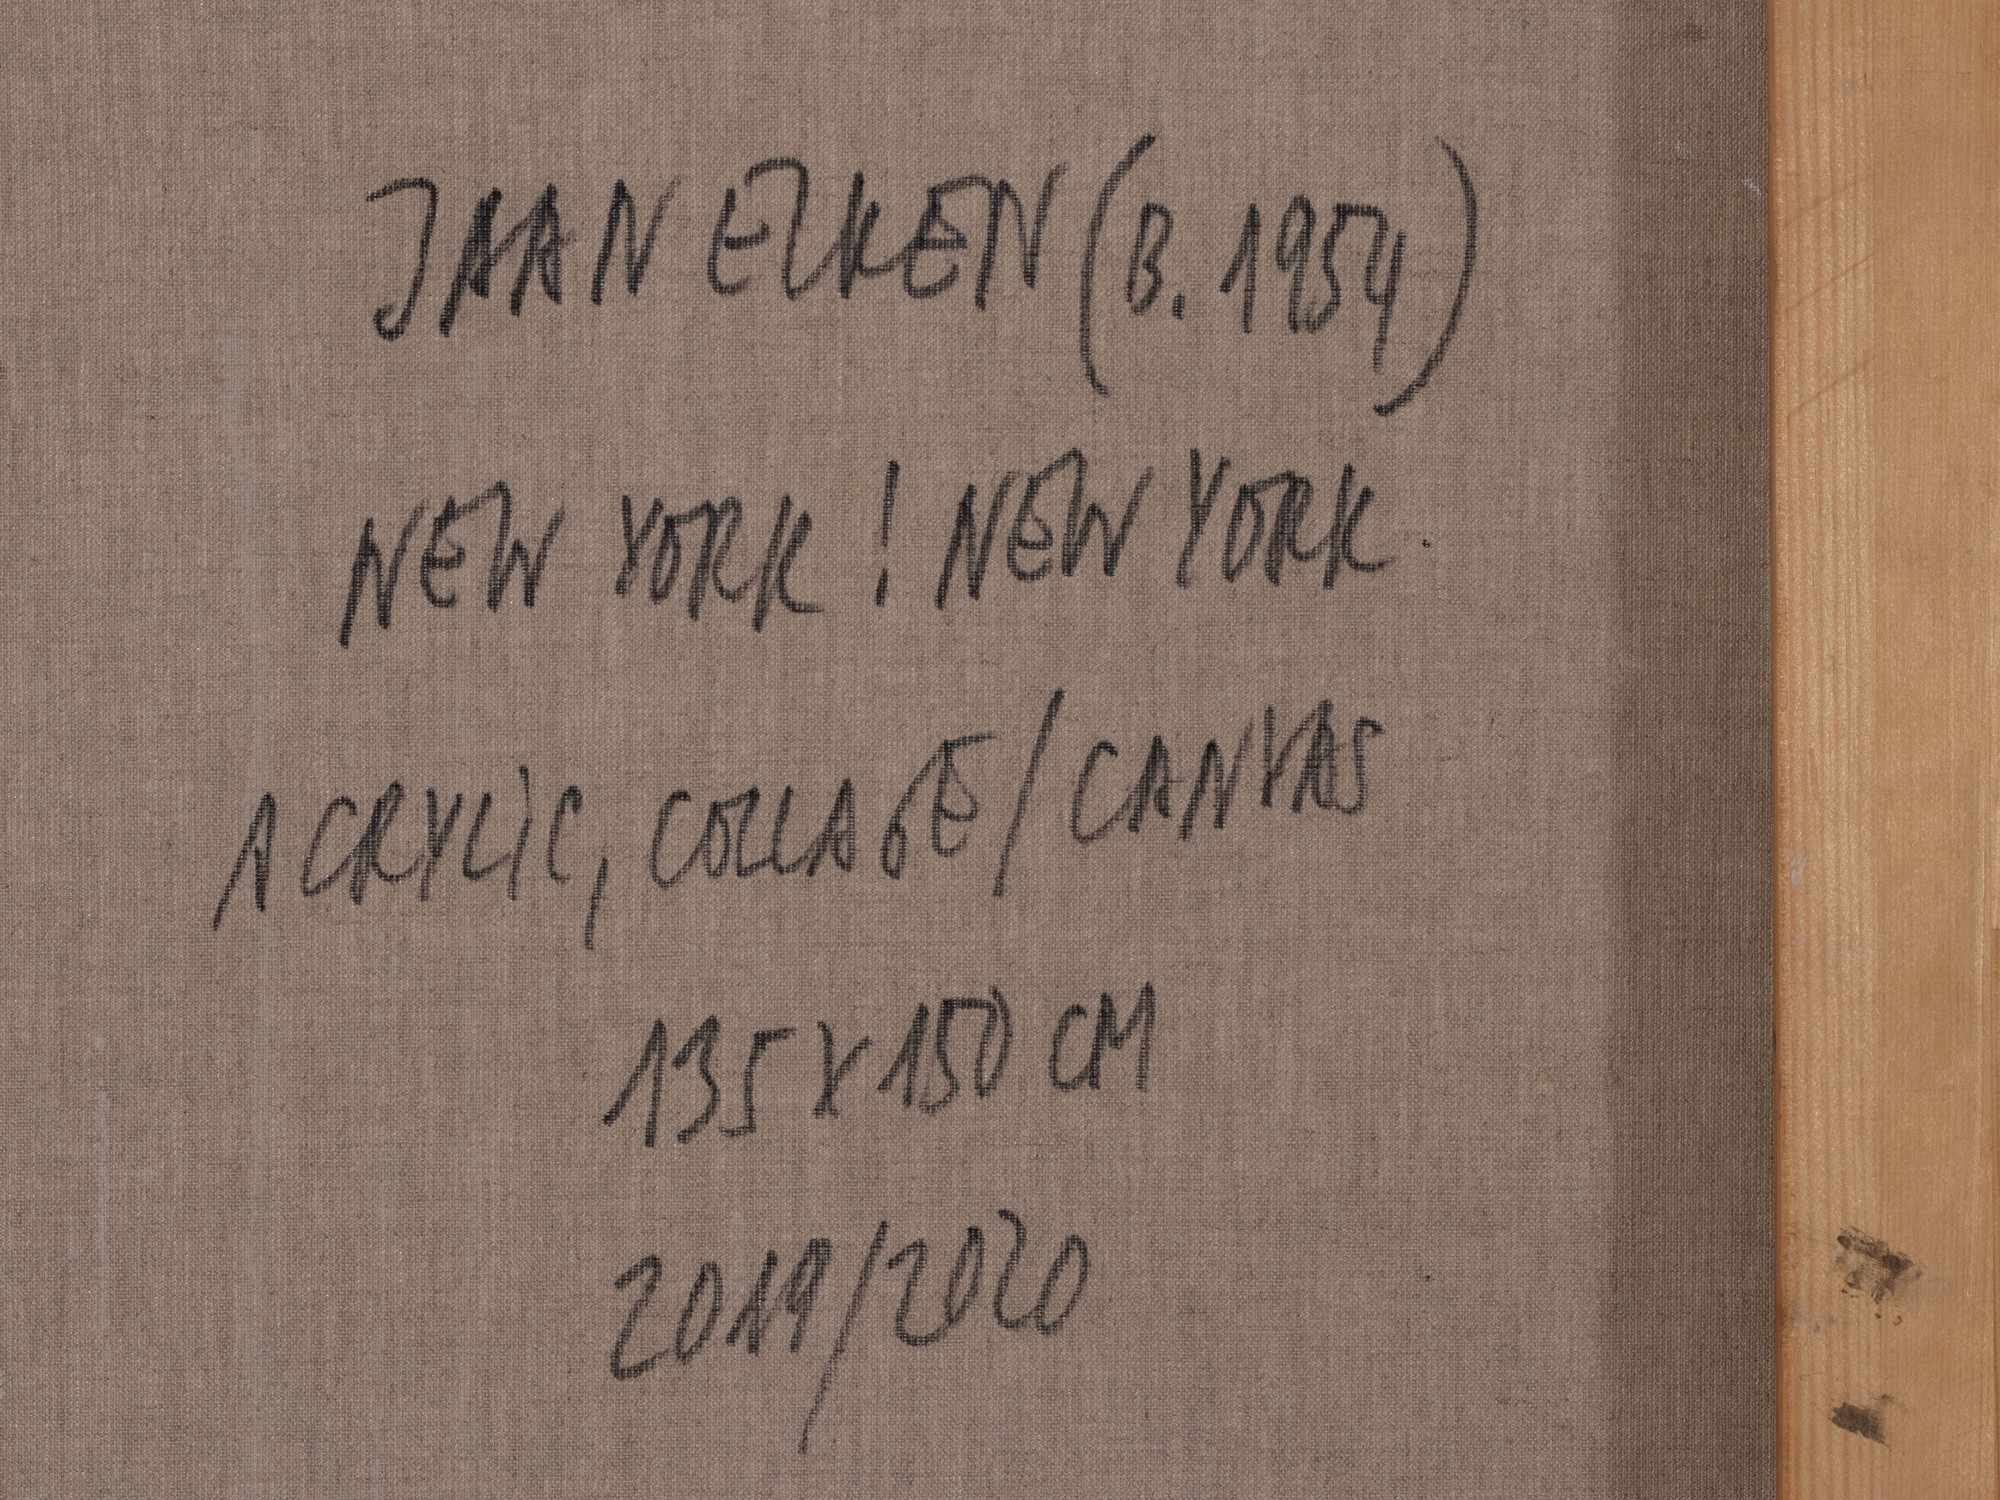 JAAN ELKEN (B. 1954)
NEW YORK! NEW YORK.
ACRYLIC, COLLAGE/CANVAS
135 X 150 CM
2019/2020